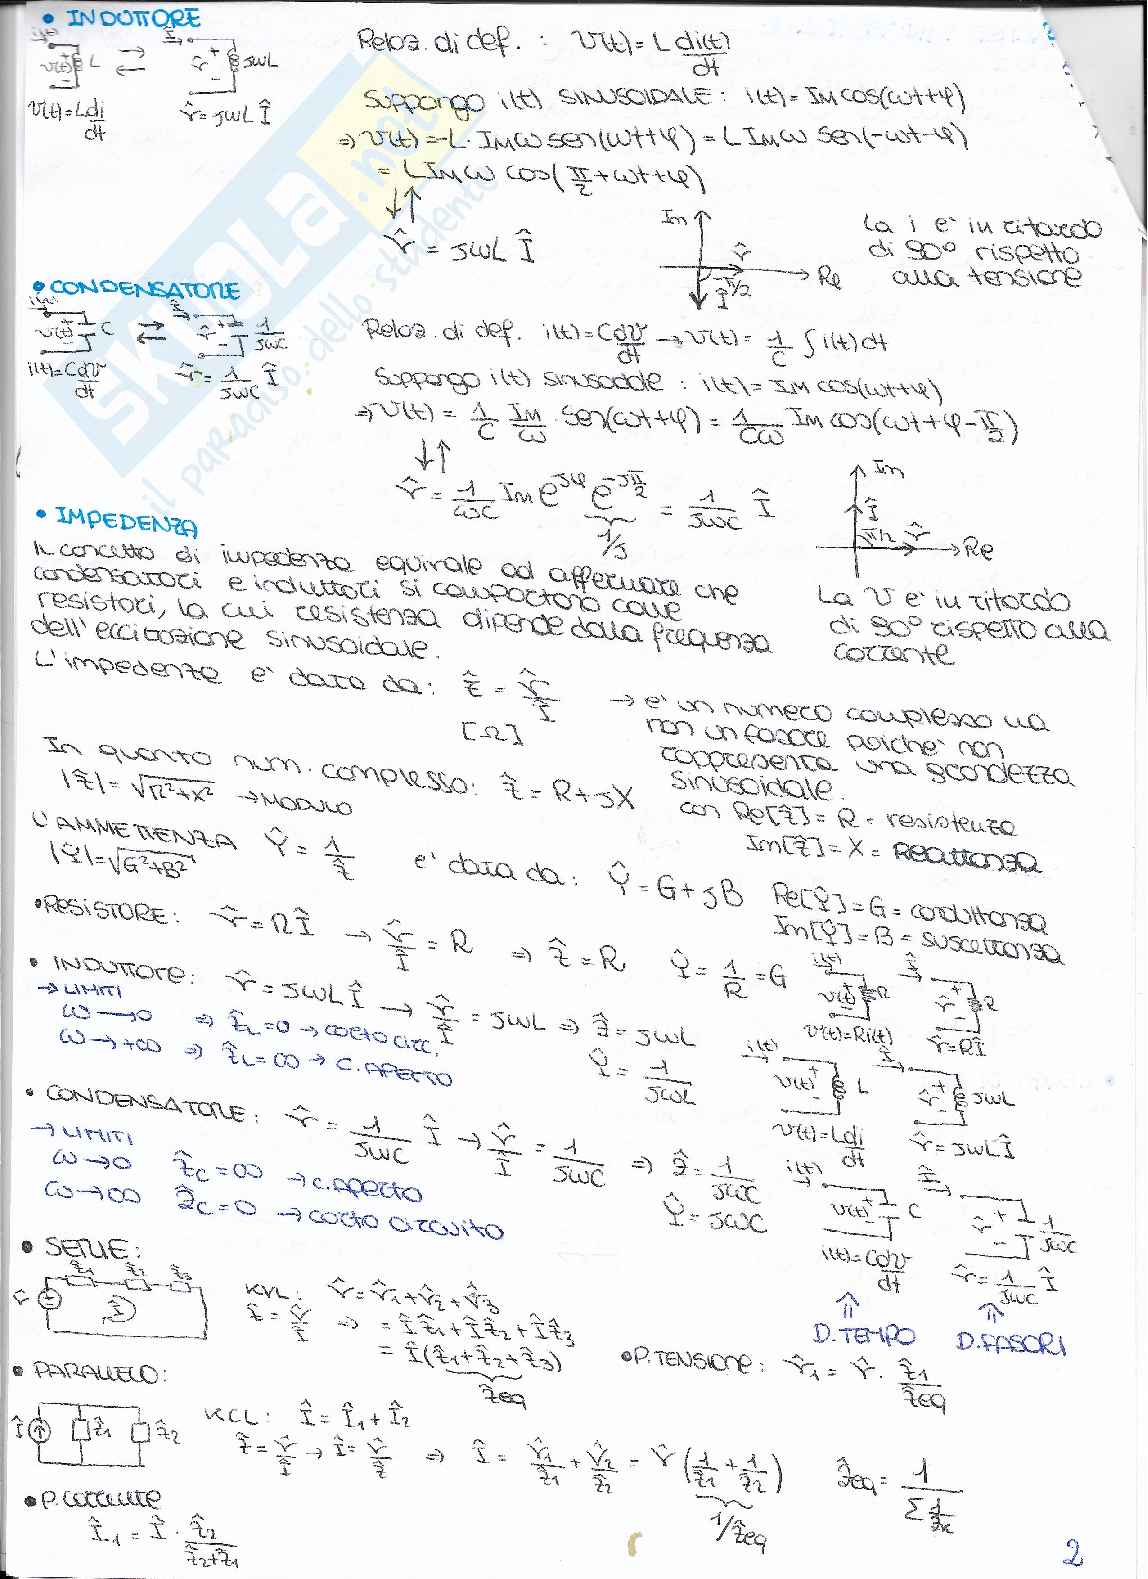 • INDUTTORE
i(t) v(t) L ⇄ Î V̂ jωL
v(t)=L di/dt V̂=jωL Î
Relaz. di def. : v(t)=L di(t)/dt
Suppongo i(t) SINUSOIDALE: i(t)=IM cos(ωt+φ)
⇒ v(t)=-L·IMω sen(ωt+φ)=L IMω sen(-ωt-φ)
= L IM ω cos(π/2+ωt+φ)
↓↑
V̂ = jωL Î
Im V̂ Re π/2 Î
La i è in ritardo
di 90° rispetto
alla tensione
• CONDENSATORE
i(t) v(t) C ⇄ Î V̂ 1/jωC
i(t)=C dv/dt V̂=1/jωC Î
Relaz. di def. i(t)=C dv/dt → v(t)=1/C ∫i(t)dt
Suppongo i(t) sinusoidale : i(t)=IM cos(ωt+φ)
⇒ v(t)=1/C IM/ω sen(ωt+φ)=1/Cω IM cos(ωt+φ-π/2)
↓↑
V̂=1/ωC IM e^jφ e^-jπ/2 = 1/jωC Î
1/j
Im Î π/2 V̂ Re
La v è in ritardo
di 90° rispetto alla
corrente
• IMPEDENZA
Il concetto di impedenza equivale ad affermare che
condensatori e induttori si comportano come
resistori, la cui resistenza dipende dalla frequenza
dell'eccitazione sinusoidale.
L'impedenza è data da: Ẑ = V̂/Î [Ω]
→ è un numero complesso ma
non un fasore poiché non
rappresenta una grandezza
sinusoidale.
In quanto num. complesso: Ẑ = R+jX
con Re[Ẑ]=R= resistenza
Im[Ẑ]=X= Reattanza
|Ẑ|=√R²+X² → MODULO
L'AMMETTENZA Ŷ=1/Ẑ è data da: Ŷ=G+jB
Re[Ŷ]=G= conduttanza
Im[Ŷ]=B= suscettanza
|Ŷ|=√G²+B²
• RESISTORE: V̂=RÎ → V̂/Î=R ⇒ Ẑ=R Ŷ=1/R=G
i(t) v(t) R Î V̂ R
v(t)=Ri(t) V̂=RÎ
• INDUTTORE: V̂=jωLÎ → V̂/Î=jωL ⇒ Ẑ=jωL
Ŷ=1/jωL
→ LIMITI
ω→0 ⇒ ẐL=0 → corto circ.
ω→+∞ ⇒ ẐL=∞ → C.APERTO
i(t) v(t) L Î V̂ jωL
v(t)=L di/dt V̂=jωLÎ
• CONDENSATORE: V̂=1/jωC Î → V̂/Î=1/jωC ⇒ Ẑ=1/jωC
Ŷ=jωC
→ LIMITI
ω→0 ẐC=∞ → C.APERTO
ω→∞ ẐC=0 → corto circuito
i(t) v(t) C Î V̂ 1/jωC
i(t)=C dv/dt V̂=1/jωC Î
⇑ ⇑
D.TEMPO D.FASORI
• SERIE:
V̂ Ẑ1 Ẑ2 Ẑ3 Î
KVL: V̂=V̂1+V̂2+V̂3
Ẑ=V̂/Î ⇒ =ÎẐ1+ÎẐ2+ÎẐ3
=Î(Ẑ1+Ẑ2+Ẑ3)
Ẑeq
• P.TENSIONE: V̂1=V̂·Ẑ1/Ẑeq
• PARALLELO:
Î Ẑ1 Ẑ2
KCL: Î=Î1+Î2
Ẑ=V̂/Î → Î=V̂/Ẑ ⇒ Î=V̂1/Ẑ1+V̂2/Ẑ2=V̂(1/Ẑ1+1/Ẑ2)
1/Ẑeq
Ẑeq=1/Σ 1/Ẑk
• P. corrente
Î1=Î·Ẑ2/Ẑ2+Ẑ1
2
SKUOLA.net
il paradiso dello studente